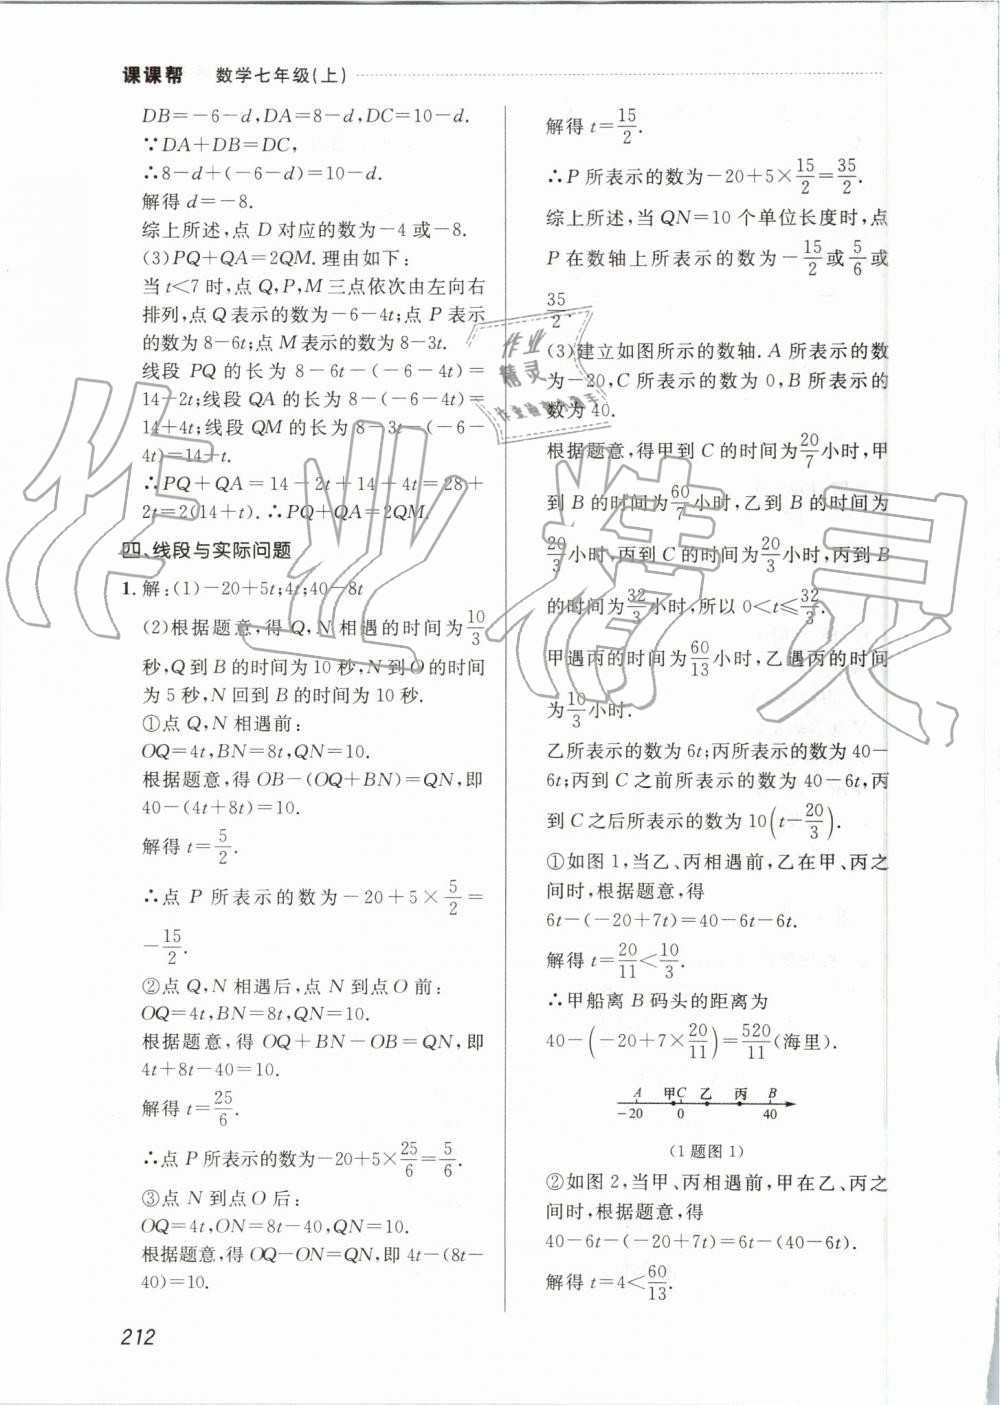 课课帮 数学七年级(上)
DB=-6-d,DA=8-d,DC=10-d.
∵DA+DB=DC,
∴8-d+(-6-d)=10-d.
解得 d=-8.
综上所述,点 D 对应的数为-4 或-8.
(3)PQ+QA=2QM. 理由如下:
当 t<7 时,点 Q,P,M 三点依次由左向右
排列,点 Q 表示的数为-6-4t;点 P 表示
的数为 8-6t;点 M 表示的数为 8-3t.
线段 PQ 的长为 8-6t-(-6-4t)=
14-2t;线段 QA 的长为 8-(-6-4t)=
14+4t;线段 QM 的长为 8-3t-(-6-
4t)=14+t.
∴PQ+QA=14-2t+14+4t=28+
2t=2(14+t). ∴PQ+QA=2QM.
四、线段与实际问题
1. 解:(1)-20+5t;4t;40-8t
(2)根据题意,得 Q,N 相遇的时间为10/3
秒,Q 到 B 的时间为 10 秒,N 到 O 的时间
为 5 秒,N 回到 B 的时间为 10 秒.
①点 Q,N 相遇前:
OQ=4t,BN=8t,QN=10.
根据题意,得 OB-(OQ+BN)=QN,即
40-(4t+8t)=10.
解得 t=5/2.
∴点 P 所表示的数为-20+5×5/2=
-15/2.
②点 Q,N 相遇后,点 N 到点 O 前:
OQ=4t,BN=8t,QN=10.
根据题意,得 OQ+BN-OB=QN,即
4t+8t-40=10.
解得 t=25/6.
∴点 P 所表示的数为-20+5×25/6=5/6.
③点 N 到点 O 后:
OQ=4t,ON=8t-40,QN=10.
根据题意,得 OQ-ON=QN,即 4t-(8t-
40)=10.
212
解得 t=15/2.
∴P 所表示的数为-20+5×15/2=35/2.
综上所述,当 QN=10 个单位长度时,点
P 在数轴上所表示的数为-15/2或5/6或
35/2.
(3)建立如图所示的数轴. A 所表示的数
为-20,C 所表示的数为 0,B 所表示的
数为 40.
根据题意,得甲到 C 的时间为20/7小时,甲
到 B 的时间为60/7小时,乙到 B 的时间为
20/3小时,丙到 C 的时间为20/3小时,丙到 B
的时间为32/3小时,所以 0<t≤32/3.
甲遇丙的时间为60/13小时,乙遇丙的时间
为10/3小时.
乙所表示的数为 6t;丙所表示的数为 40-
6t;丙到 C 之前所表示的数为 40-6t,丙
到 C 之后所表示的数为 10(t-20/3).
①如图 1,当乙、丙相遇前,乙在甲、丙之
间时,根据题意,得
6t-(-20+7t)=40-6t-6t.
解得 t=20/11<10/3.
∴甲船离 B 码头的距离为
40-(-20+7×20/11)=520/11(海里).
A 甲C 乙 丙 B
-20 0 40
(1 题图 1)
②如图 2,当甲、丙相遇前,甲在乙、丙之
间时,根据题意,得
40-6t-(-20+7t)=6t-(40-6t).
解得 t=4<60/13.
作业
精灵
作业精灵